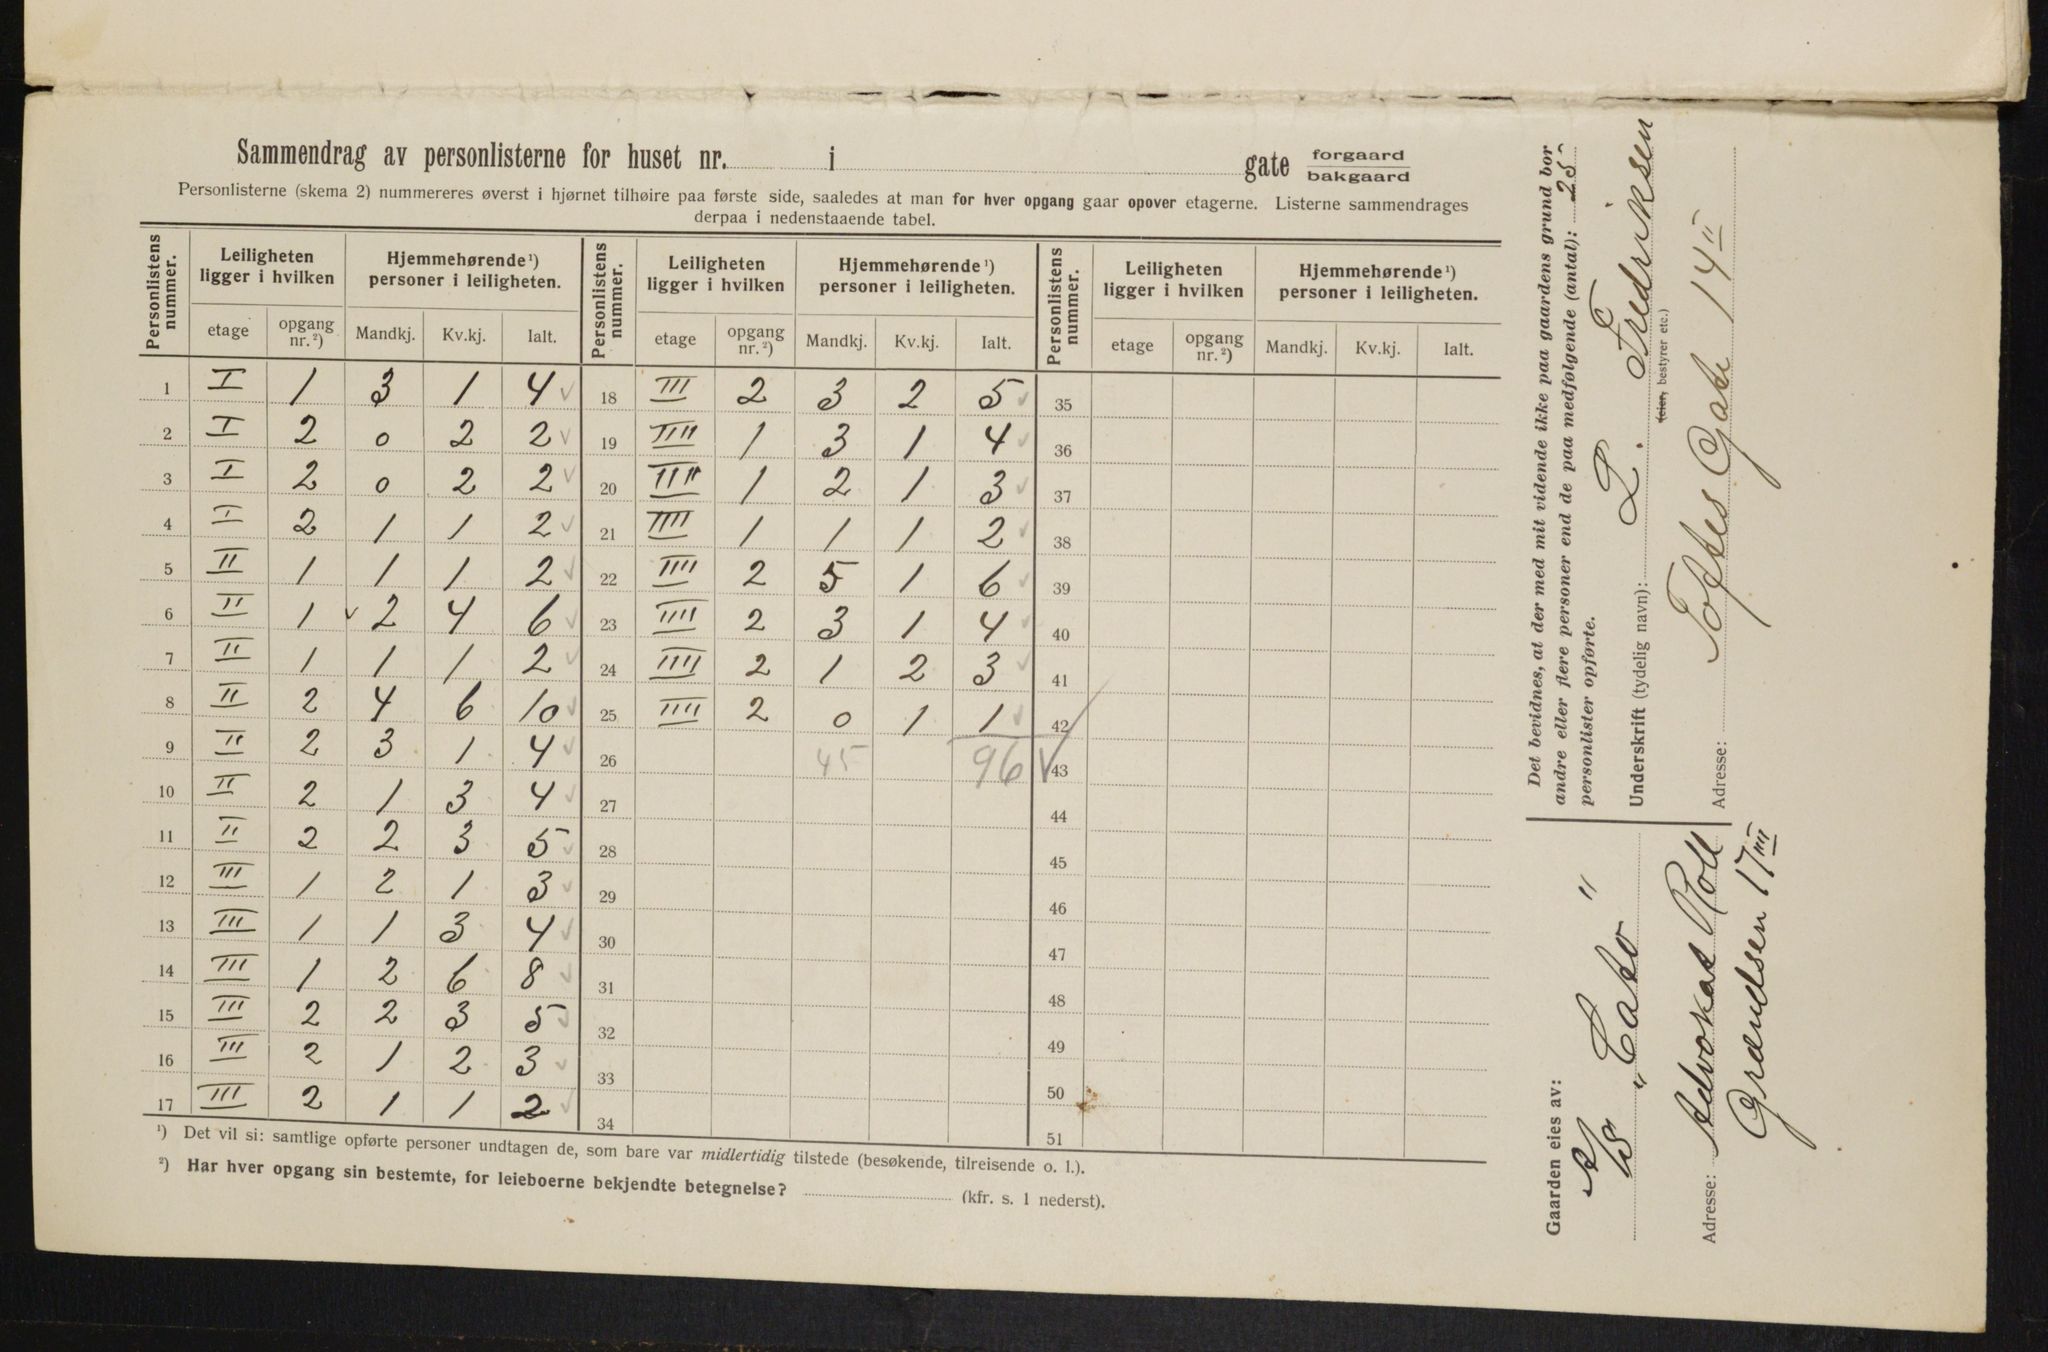 Sammendrag av personlisterne for huset nr. i gate forgaard bakgaard
Personlisterne (skema 2) nummereres øverst i hjørnet tilhøire paa første side, saaledes at man for hver opgang gaar opover etagerne. Listerne sammendrages
derpaa i nedenstaaende tabel.
Personlistens nummer. Leiligheten ligger i hvilken Hjemmehørende ¹) personer i leiligheten. Personlistens nummer. Leiligheten ligger i hvilken Hjemmehørende ¹) personer i leiligheten. Personlistens nummer. Leiligheten ligger i hvilken Hjemmehørende ¹) personer i leiligheten.
etage opgang nr. ²) Mandkj. Kv.kj. Ialt. etage opgang nr. ²) Mandkj. Kv.kj. Ialt. etage opgang nr. ²) Mandkj. Kv.kj. Ialt.
1 I 1 3 1 4 18 III 2 3 2 5 35
2 I 2 0 2 2 19 IIII 1 3 1 4 36
3 I 2 0 2 2 20 IIII 1 2 1 3 37
4 I 2 1 1 2 21 IIII 1 1 1 2 38
5 II 1 1 1 2 22 IIII 2 5 1 6 39
6 II 1 2 4 6 23 IIII 2 3 1 4 40
7 II 1 1 1 2 24 IIII 2 1 2 3 41
8 II 2 4 6 10 25 IIII 2 0 1 1 42
9 II 2 3 1 4 26 45 96 43
10 II 2 1 3 4 27 44
11 II 2 2 3 5 28 45
12 III 1 2 1 3 29 46
13 III 1 1 3 4 30 47
14 III 1 2 6 8 31 48
15 III 2 2 3 5 32 49
16 III 2 1 2 3 33 50
17 III 2 1 1 2 34 51
¹) Det vil si: samtlige opførte personer undtagen de, som bare var midlertidig tilstede (besøkende, tilreisende o. l.).
²) Har hver opgang sin bestemte, for leieboerne bekjendte betegnelse? (kfr. s. 1 nederst).
Det bevidnes, at der med mit vidende ikke paa gaardens grund bor
andre eller flere personer end de paa medfølgende (antal): 25
personlister opførte.
Underskrift (tydelig navn): L. Fredriksen
(eier, bestyrer etc.)
Adresse: Toftes Gate 14 II
Gaarden eies av:
A/S "Cato"
Adresse: Advokat Roll
Grændsen 17 III